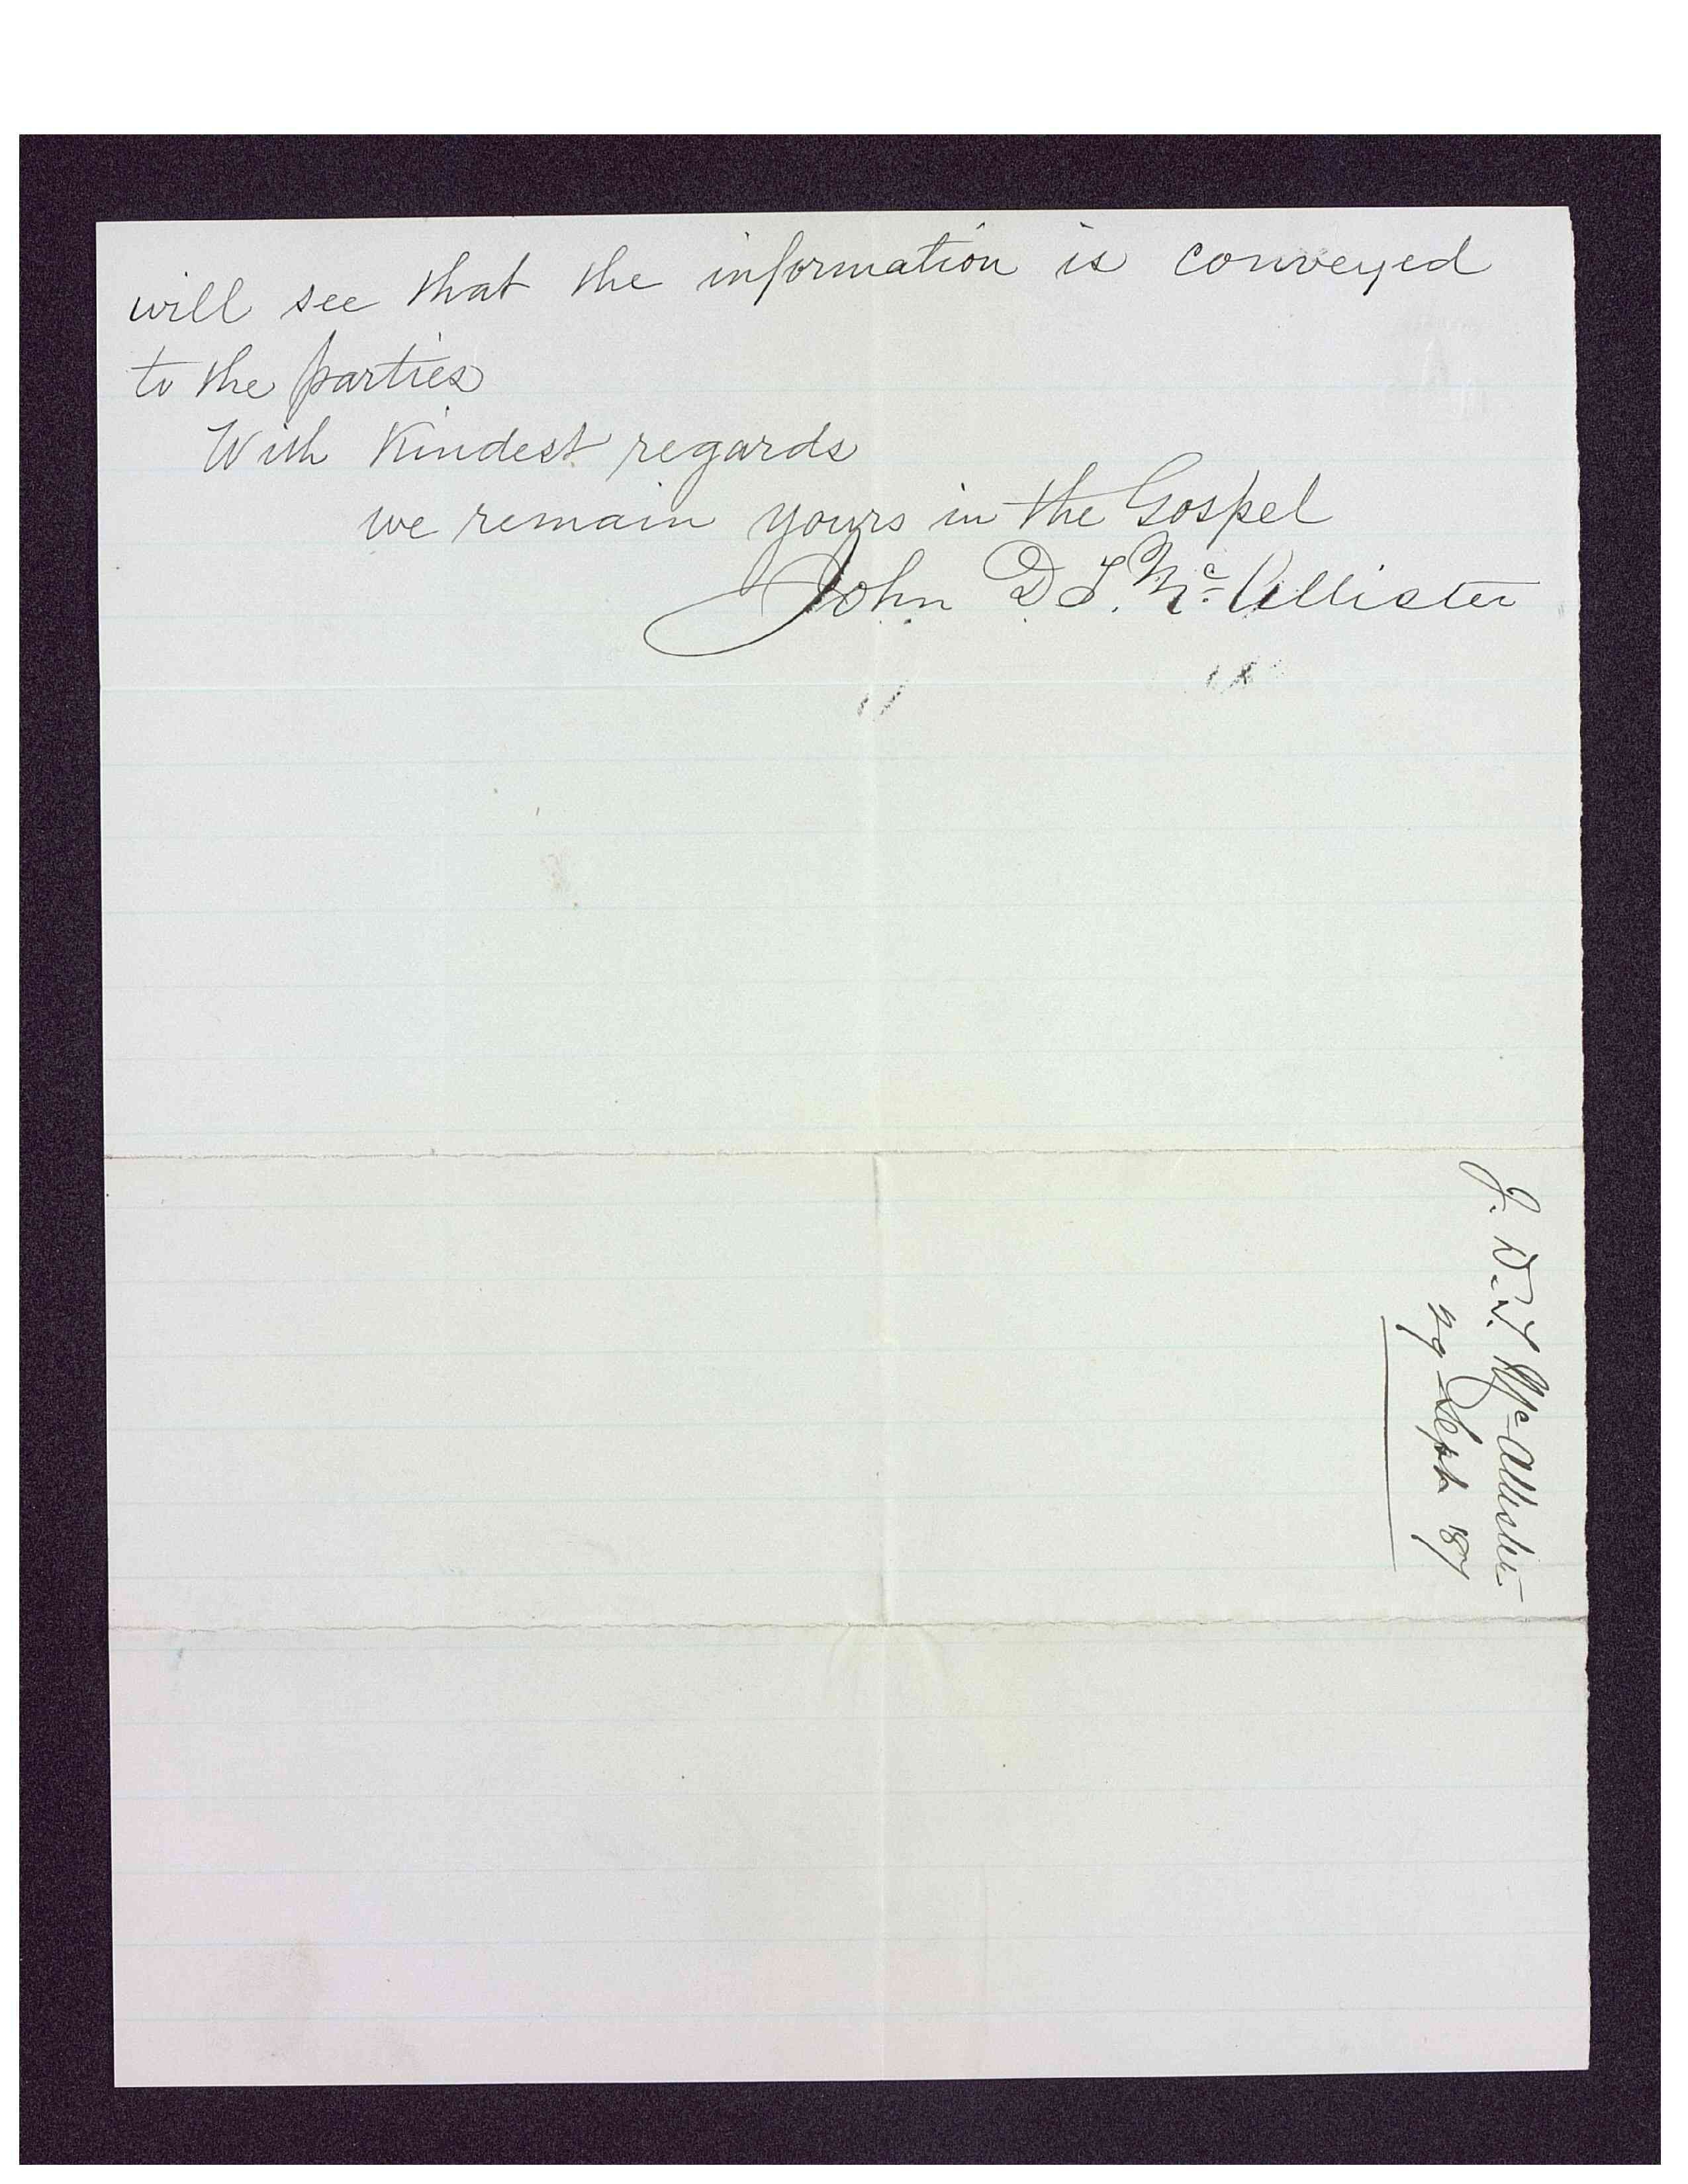 will see that the information is conveyed
to the parties
With Kindest regards
we remain yours in the Gospel
John D T. Mc Allister
J. D. T. McAllister
29 Sept '87